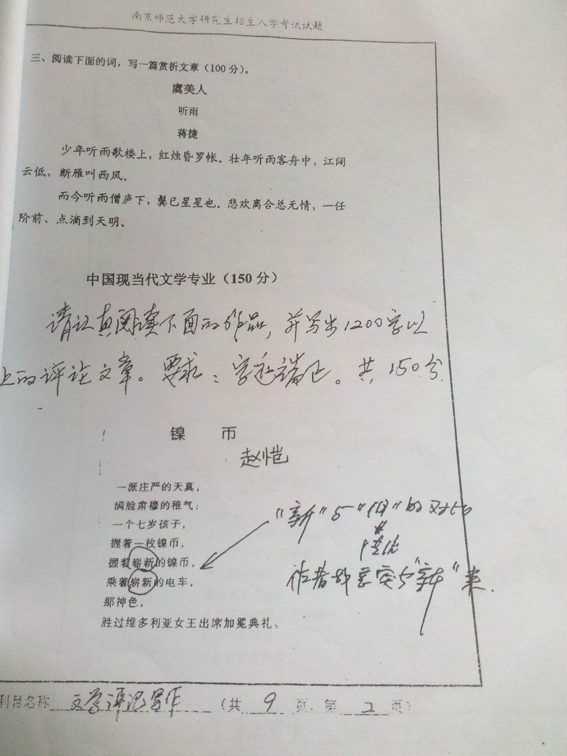 南京师范大学研究生招生入学考试试题
三、阅读下面的词，写一篇赏析文章（100分）。
虞美人
听雨
蒋捷
少年听雨歌楼上，红烛昏罗帐。壮年听雨客舟中，江阔
云低，断雁叫西风。
而今听雨僧庐下，鬓已星星也。悲欢离合总无情，一任
阶前、点滴到天明。
中国现当代文学专业（150分）
请认真阅读下面的作品，并写出1200字以
上的评论文章。要求：字迹端正。共150分.
镍 币
赵恺
一派庄严的天真，
满脸肃穆的稚气；
一个七岁孩子，
握着一枚镍币，
握着崭新的镍币，
乘着崭新的电车，
那神色，
胜过维多利亚女王出席加冕典礼。
"新"与"旧"的对比
作者却意突出"新"来.
科目名称 文学评论写作 （共 9 页，第 2 页）